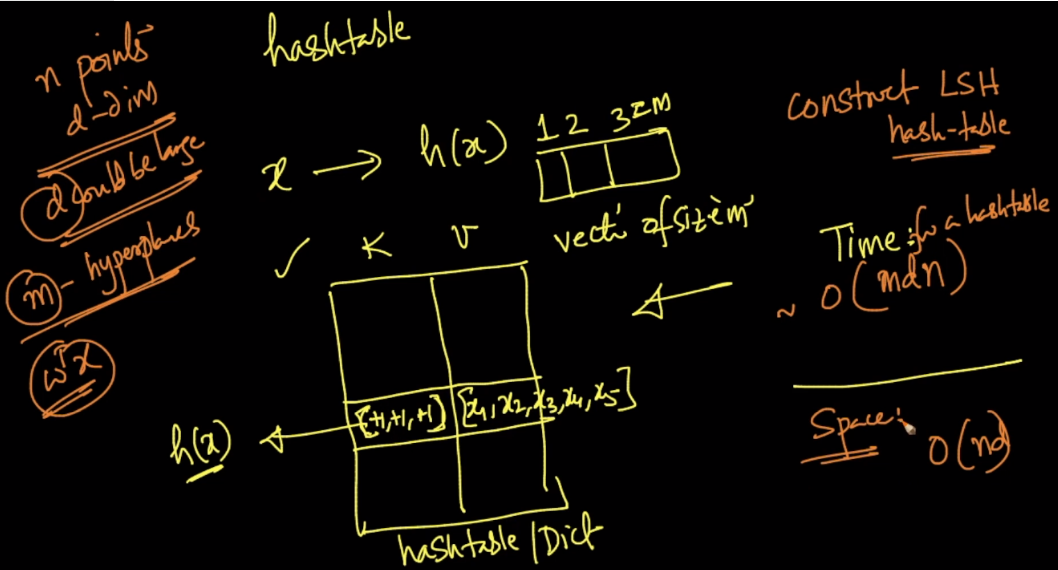 n points
d-dim
d could be large
m - hyperplanes
wᵀx
hashtable
x → h(x)
1 2 3=m
vector of size 'm'
✓ K V
[+1,+1,+1] [x₁, x₂, x₃, x₄, x₅]
h(x)
hashtable / Dict
construct LSH
hash-table
Time: for a hashtable
~ O(mdn)
Space:
O(nd)